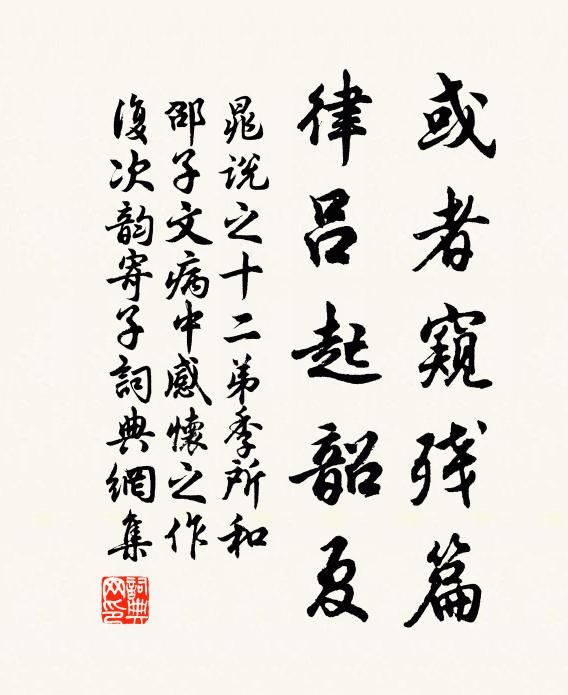 或者窺残篇
律呂起韶夏
晁說之十二弟季所和
邵子文病中感懷之作
復次韵寄子詞典網集
詞典
网印